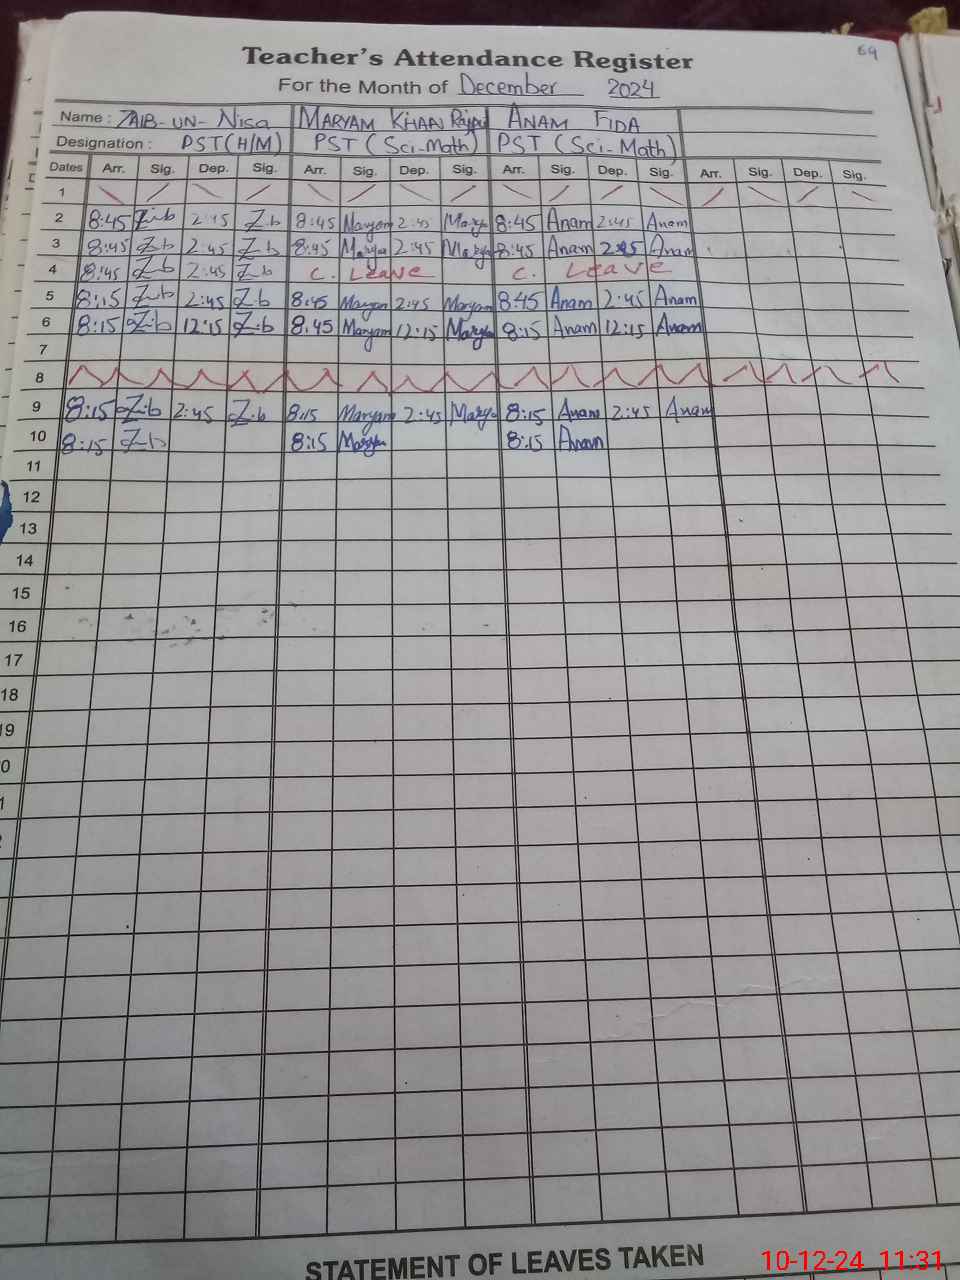 69
Teacher's Attendance Register
For the Month of December 2024
Name : ZAIB-UN-NISA MARYAM KHAN Rajpu ANAM FIDA
Designation : PST(H/M) PST (Sci-Math) PST (Sci-Math)
Dates Arr. Sig. Dep. Sig. Arr. Sig. Dep. Sig. Arr. Sig. Dep. Sig. Arr. Sig. Dep. Sig.
1
2 8:45 Z.b 2:45 Z.b 8:45 Maryam 2:45 Mary 8:45 Anam 2:45 Anam
3 8:45 Z.b 2:45 Z.b 8:45 Marya 2:45 Marya 8:45 Anam 2:45 Anam
4 8:45 Z.b 2:45 Z.b C. Leave C. Leave
5 8:15 Z.b 2:45 Z.b 8:45 Maryam 2:45 Maryam 8:45 Anam 2:45 Anam
6 8:15 Z.b 12:15 Z.b 8:45 Maryam 12:15 Marya 8:15 Anam 12:15 Anam
7
8
9 8:15 Z.b 2:45 Z.b 8:15 Maryam 2:45 Marya 8:15 Anam 2:45 Anam
10 8:15 Z.b 8:15 Maryam 8:15 Anam
11
12
13
14
15
16
17
18
19
0
1
STATEMENT OF LEAVES TAKEN
10-12-24 11:31